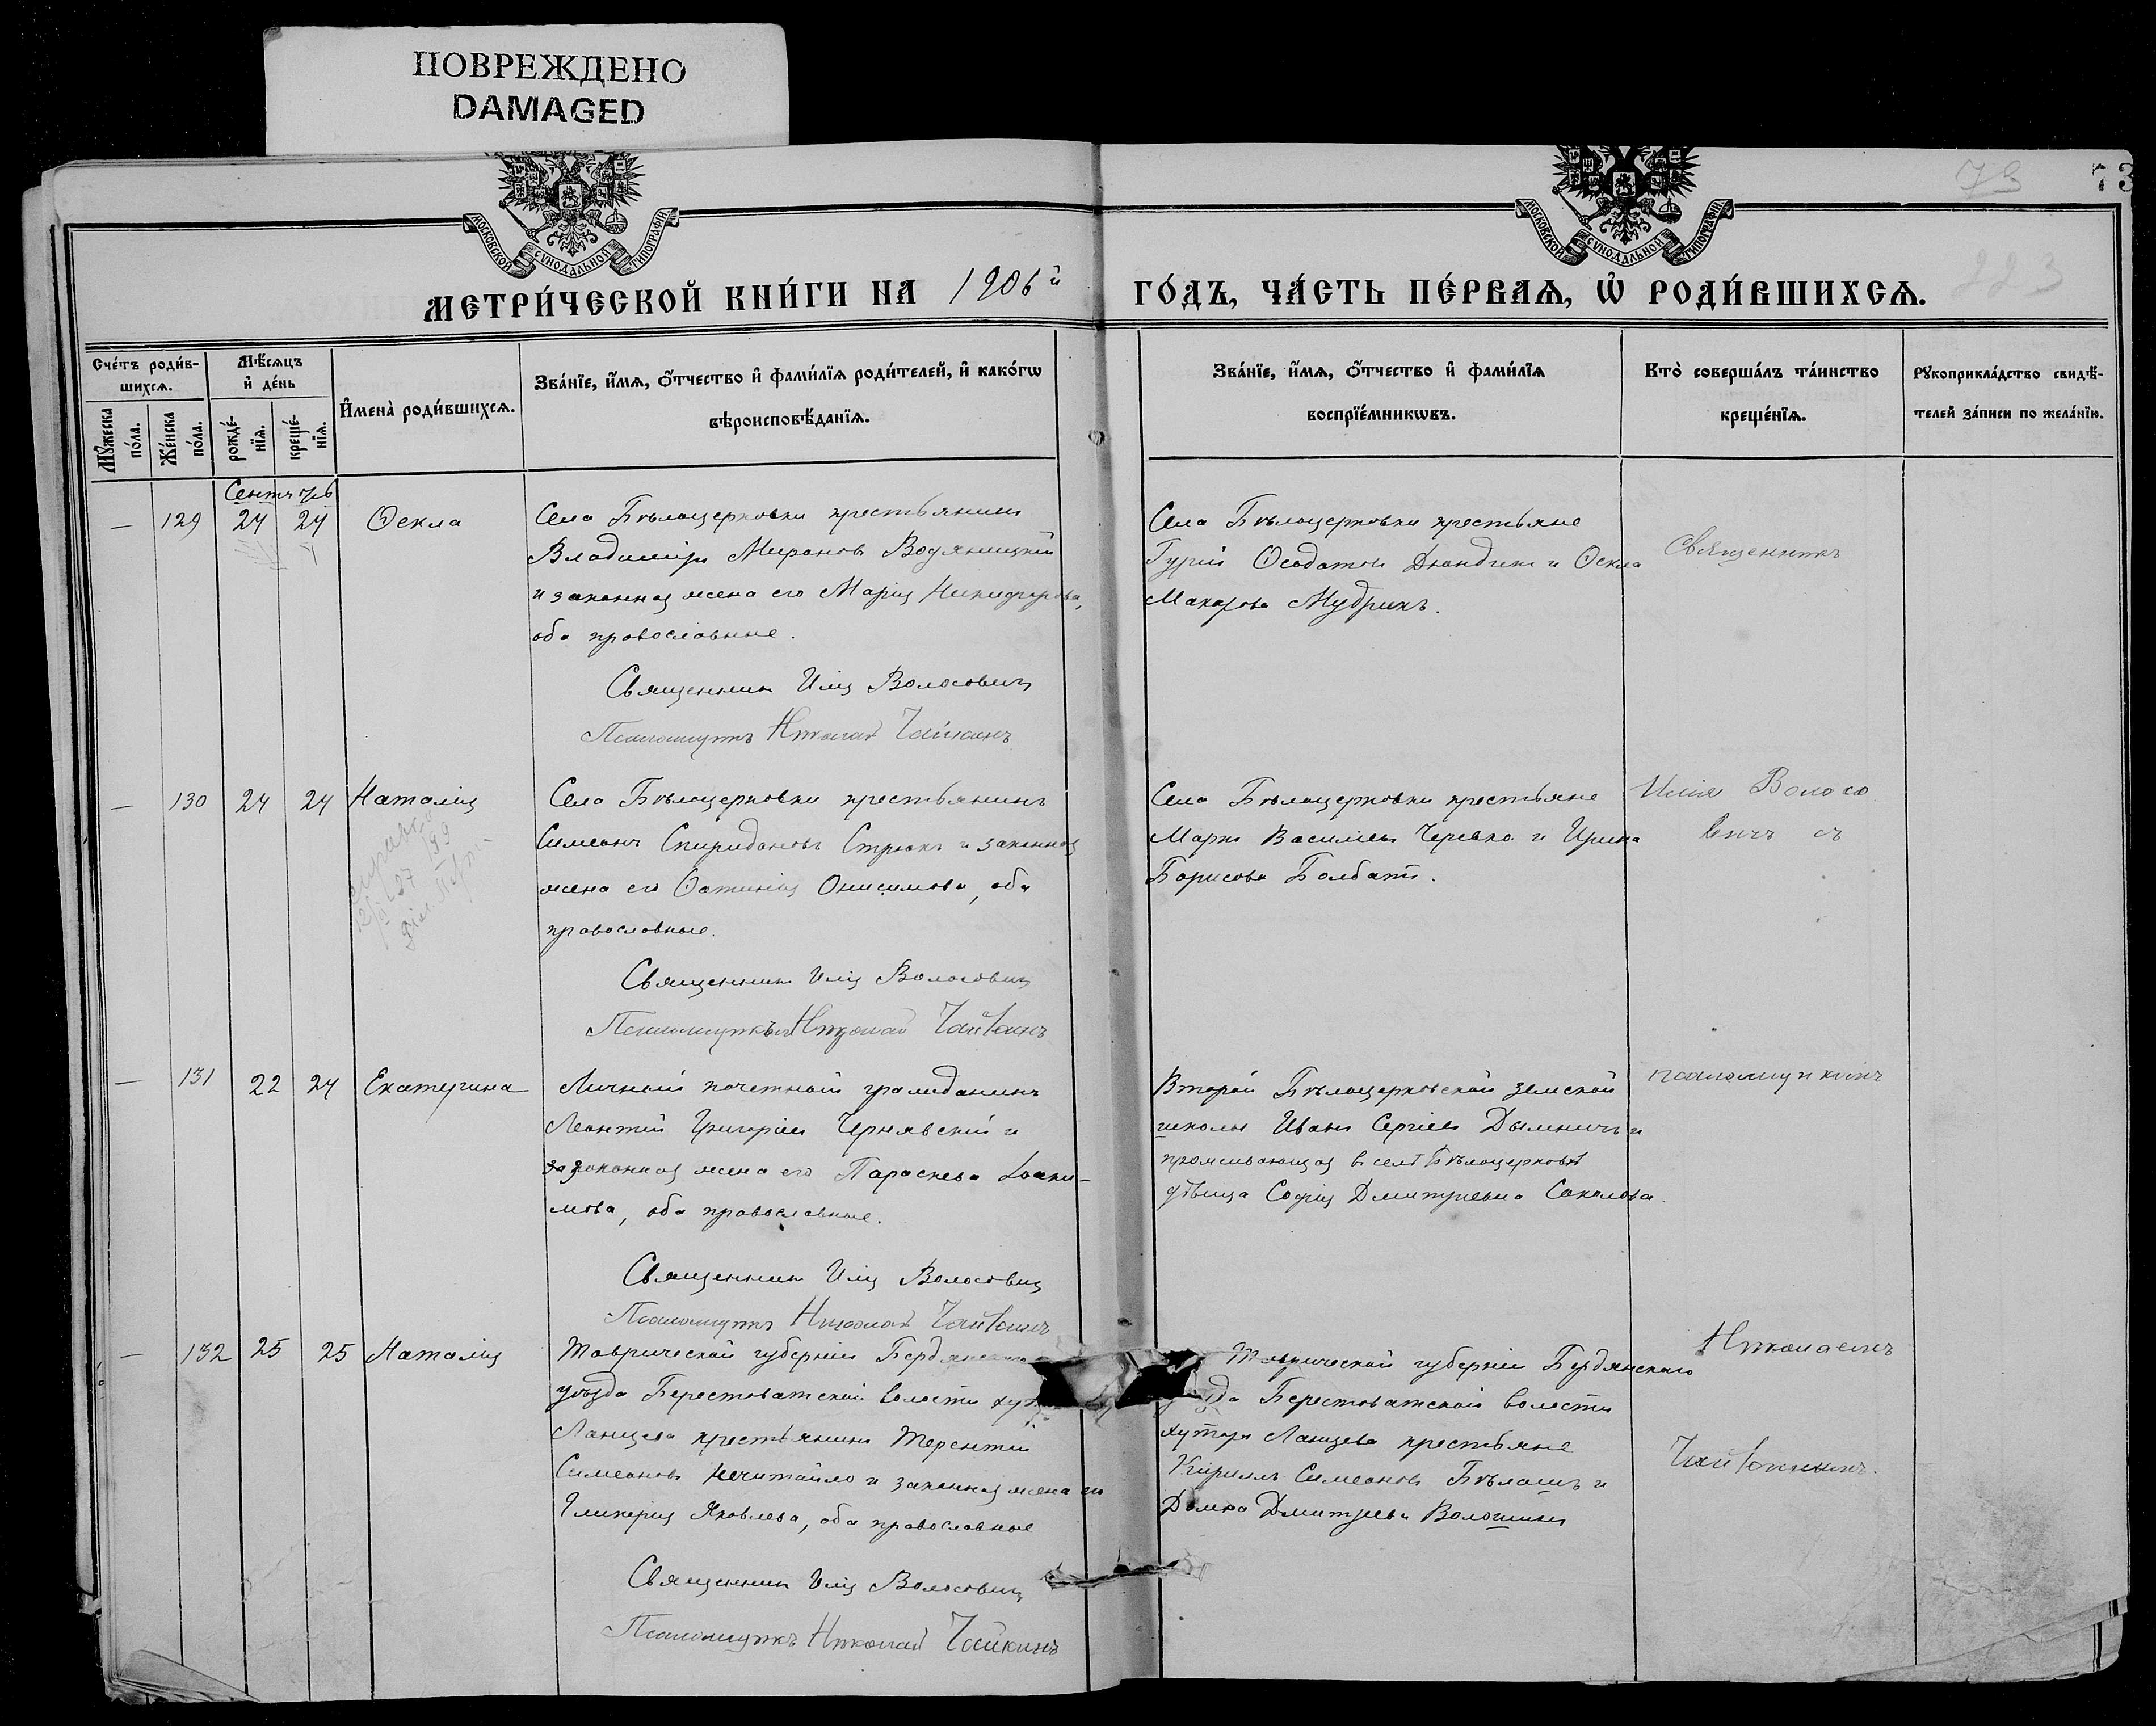 ПОВРЕЖДЕНО
DAMAGED
МОСКОВСКОЙ СѴНОДАЛЬНОЙ ТИПОГРАФІИ
МОСКОВСКОЙ СѴНОДАЛЬНОЙ ТИПОГРАФІИ
73
73
223
МЕТРИ́ЧЕСКОЙ КНИ́ГИ НА 1906й ГО́ДЪ, ЧА́СТЬ ПЕ́РВАѦ, Ѡ҆ РОДИ́ВШИХСѦ.
Сче́тъ роди́в-
шихсѧ.
Мꙋ́жеска по́ла.
Же́нска по́ла.
Мѣ́сѧцъ
и҆ де́нь
рожде́-
нїѧ.
креще́-
нїѧ.
И҆мена̀ роди́вшихсѧ.
Зва́нїе, и҆́мѧ, ѻ҆́тчество и҆ фами́лїѧ роди́телей, и҆ како́гѡ
вѣроисповѣ́данїѧ.
Зва́нїе, и҆́мѧ, ѻ҆́тчество и҆ фами́лїѧ
воспрїе́мникѡвъ.
Кто̀ соверша́лъ та́инство
креще́нїѧ.
Рꙋкоприкла́дство свидѣ́-
телей за́писи по жела́нїю.
— 129 24 24 Ѳекла
Села Бѣлоцерковки крестьянинъ
Владиміръ Мироновъ Водяницкій
и законная жена его Марія Никифорова,
оба православные.
Священникъ Илія Волосовичъ
Псаломщикъ Николай Чайкинъ
Села Бѣлоцерковки крестьяне
Гурій Ѳеодотовъ и Ѳекла
Макарова Мудрикъ.
Священникъ
— 130 24 24 Наталія
Села Бѣлоцерковки крестьянинъ
Симеонъ Спиридоновъ Стрюкъ и законная
жена его Фотинія Онисимова, оба
православные.
Священникъ Илія Волосовичъ
Псаломщикъ Николай Чайкинъ
Села Бѣлоцерковки крестьяне
Маркъ Васильевъ Черевко и Ирина
Борисова Болбатъ.
Илія Волосо
вичъ съ
— 131 22 24 Екатерина
Личный почетный гражданинъ
Леонтій Григорьевъ Чернявскій и
законная жена его Параскева Іоаки-
мова, оба православные.
Священникъ Илія Волосовичъ
Псаломщикъ Николай Чайкинъ
Второй Бѣлоцерковской земской
школы Иванъ Сергіевъ и
проживающая въ селѣ Бѣлоцерковкѣ
дѣвица Софія Дмитріевна Соколова.
псаломщикомъ
— 132 25 25 Наталія
Таврической губерніи
уѣзда Берестоватской волости
Ланцева крестьянинъ Терентій
Симеоновъ Нечитайло и законная жена его
Гликерія Яковлева, оба православные
Священникъ Илія Волосовичъ
Псаломщикъ Николай Чайкинъ
Таврической губерніи Бердянскаго
уѣзда Берестоватской волости
хутора Ланцева крестьяне
Кириллъ Симеоновъ Бѣлашъ и
Домна Дмитріева Волошинъ
Николаемъ
Чайкинымъ.